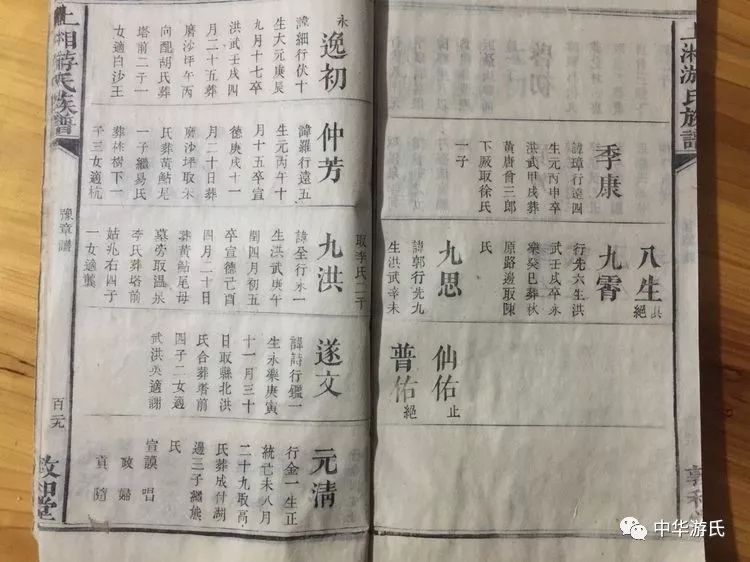 上湘游氏族譜
季康
諱璋行遠四
生元丙申卒
洪武甲戌葬
黃唐曾三郎
下厥取徐氏
一子
八生
俱絕
九霄
行先六生洪
武壬戌卒永
樂癸巳葬秋
原路邊取陳
氏
九思
諱郭行先九
生洪武辛未
取李氏二子
仙佑止
普佑絕
永
逸初
諱細行伏十
生大元庚辰
九月十七卒
洪武壬戌四
月二十五葬
磨沙坪午丙
向配胡氏葬
塔前二子一
女適白沙王
仲芳
諱羅行遠五
生元丙午十
月十五卒宣
德庚戌十一
月二十日葬
磨沙坪取朱
氏葬黃鮎尾
一子繼易氏
葬株樹下一
子三女適杭
九洪
諱全行永一
生洪武庚午
閏四月初五
卒宣德己酉
四月二十日
葬黃鮎尾母
墓旁取溫氏
李氏葬塔前
姑兆右四子
一女適龔
遂文
諱詩行鑑一
生永樂庚寅
十一月三十
日取縣北洪
氏合葬耆前
四子二女適
武洪英適謝
元清
行金一生正
統己未八月
二十九取高
氏葬成付湖
邊三子繼熊
氏
宣謨 唱
政 婦
貢 隨
上湘游氏族譜
豫章譜
百元
敦和堂
中华游氏